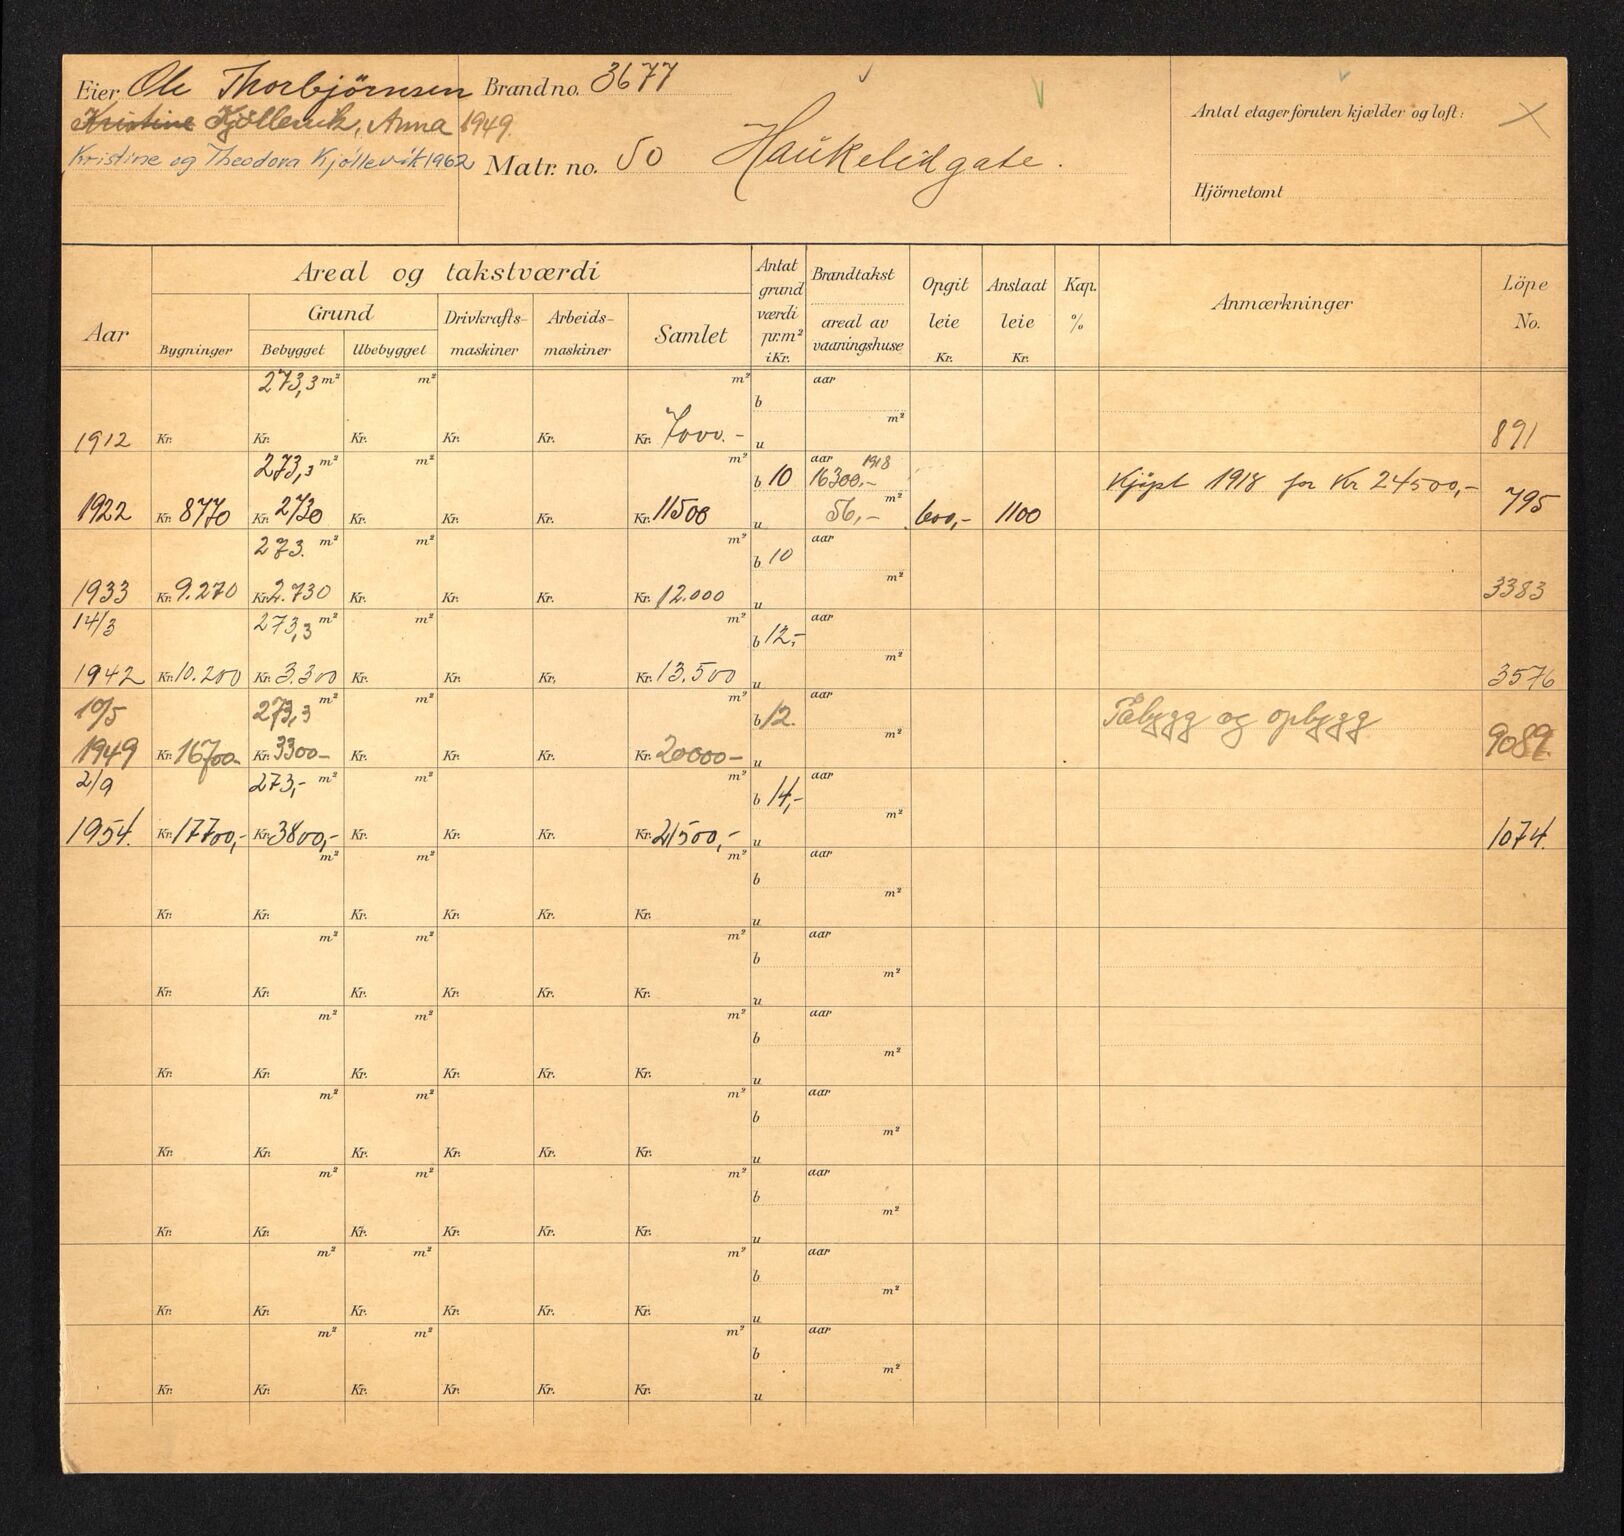 Eier Ole Thorbjörnsen
Kristine Kjöllevik, Anna 1949.
Kristine og Theodora Kjöllevik 1962
Brand no. 3677
Matr. no. 50 Haukelidgate.
Antal etager foruten kjælder og loft:
Hjörnetomt
Aar
Areal og takstværdi
Bygninger
Grund
Bebygget Ubebygget
Drivkrafts-
maskiner
Arbeids-
maskiner
Samlet
Antat
grund
værdi
pr. m²
i Kr.
Brandtakst
areal av
vaaningshuse
Opgit
leie
Kr.
Anslaat
leie
Kr.
Kap.
%
Anmærkninger
Löpe
No.
273,3 m² m² m² aar
b
m²
1912 Kr. Kr. Kr. Kr. Kr. Kr. 7000.- u 891
273,3 m² m² m² aar 1918
b 10 16300.- Kjöpt 1918 for Kr 24500,-
m²
1922 Kr. 8770 Kr. 2730 Kr. Kr. Kr. Kr. 11500 u 56,- 600,- 1100 795
273. m² m² m² aar
b 10
m²
1933 Kr. 9.270 Kr. 2.730 Kr. Kr. Kr. Kr. 12.000 u 3383
14/3 273,3 m² m² m² aar
b 12,-
m²
1942 Kr. 10.200 Kr. 3.300 Kr. Kr. Kr. Kr. 13.500 u 3576
10/5 273,3 m² m² m² aar
b 12. Påbygg og opbygg
m²
1949 Kr. 16700- Kr. 3300- Kr. Kr. Kr. Kr. 20000- u 9089.
2/9 273,- m² m² m² aar
b 14,-
m²
1954. Kr. 17700,- Kr. 3800,- Kr. Kr. Kr. Kr. 21500,- u 1074.
m² m² m² aar
b
m²
Kr. Kr. Kr. Kr. Kr. Kr. u
m² m² m² aar
b
m²
Kr. Kr. Kr. Kr. Kr. Kr. u
m² m² m² aar
b
m²
Kr. Kr. Kr. Kr. Kr. Kr. u
m² m² m² aar
b
m²
Kr. Kr. Kr. Kr. Kr. Kr. u
m² m² m² aar
b
m²
Kr. Kr. Kr. Kr. Kr. Kr. u
m² m² m² aar
b
m²
Kr. Kr. Kr. Kr. Kr. Kr. u
m² m² m² aar
b
m²
Kr. Kr. Kr. Kr. Kr. Kr. u